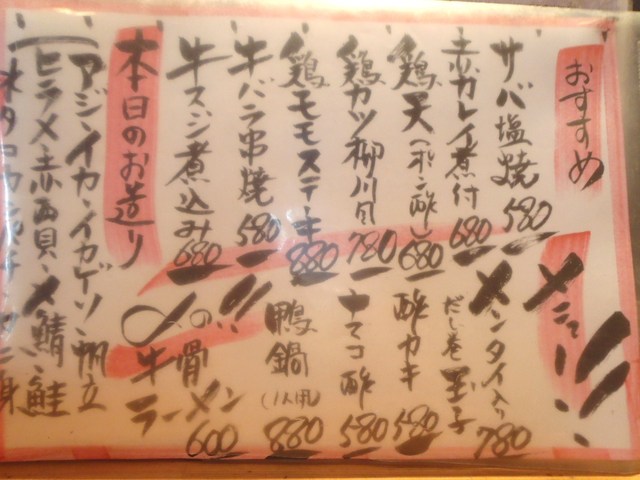 おすすめ
メニュー!!
サバ塩焼 580
赤カレイ煮付 680
鶏天(ポン酢) 680
鶏カツ柳川風 780
鶏モモステーキ 880
牛バラ串焼 580
牛スジ煮込み 680
メンタイ入り 780
だし巻玉子
酢カキ 580
ナマコ酢 580
鴨鍋(1人用) 880
〆の!!!
牛骨ラーメン 600
本日のお造り
アジ、イカ、イカゲソ、帆立
ヒラメ、赤貝、〆鯖、鮭
水タコ